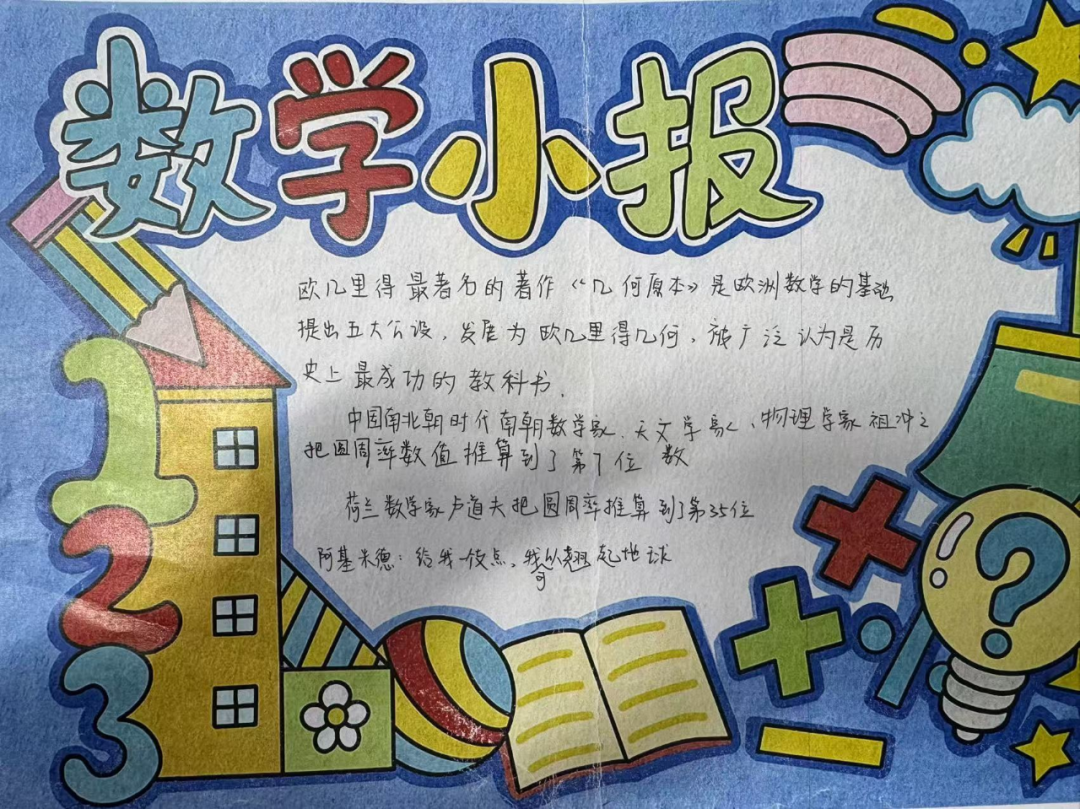 数学小报
欧几里得最著名的著作《几何原本》是欧洲数学的基础
提出五大公设，发展为欧几里得几何，被广泛认为是历
史上最成功的教科书.
中国南北朝时代南朝数学家、天文学家、物理学家祖冲之
把圆周率数值推算到了第7位数
荷兰数学家卢道夫把圆周率推算到了第35位
阿基米德：给我一放点，我可以翘起地球
1
2
3
?